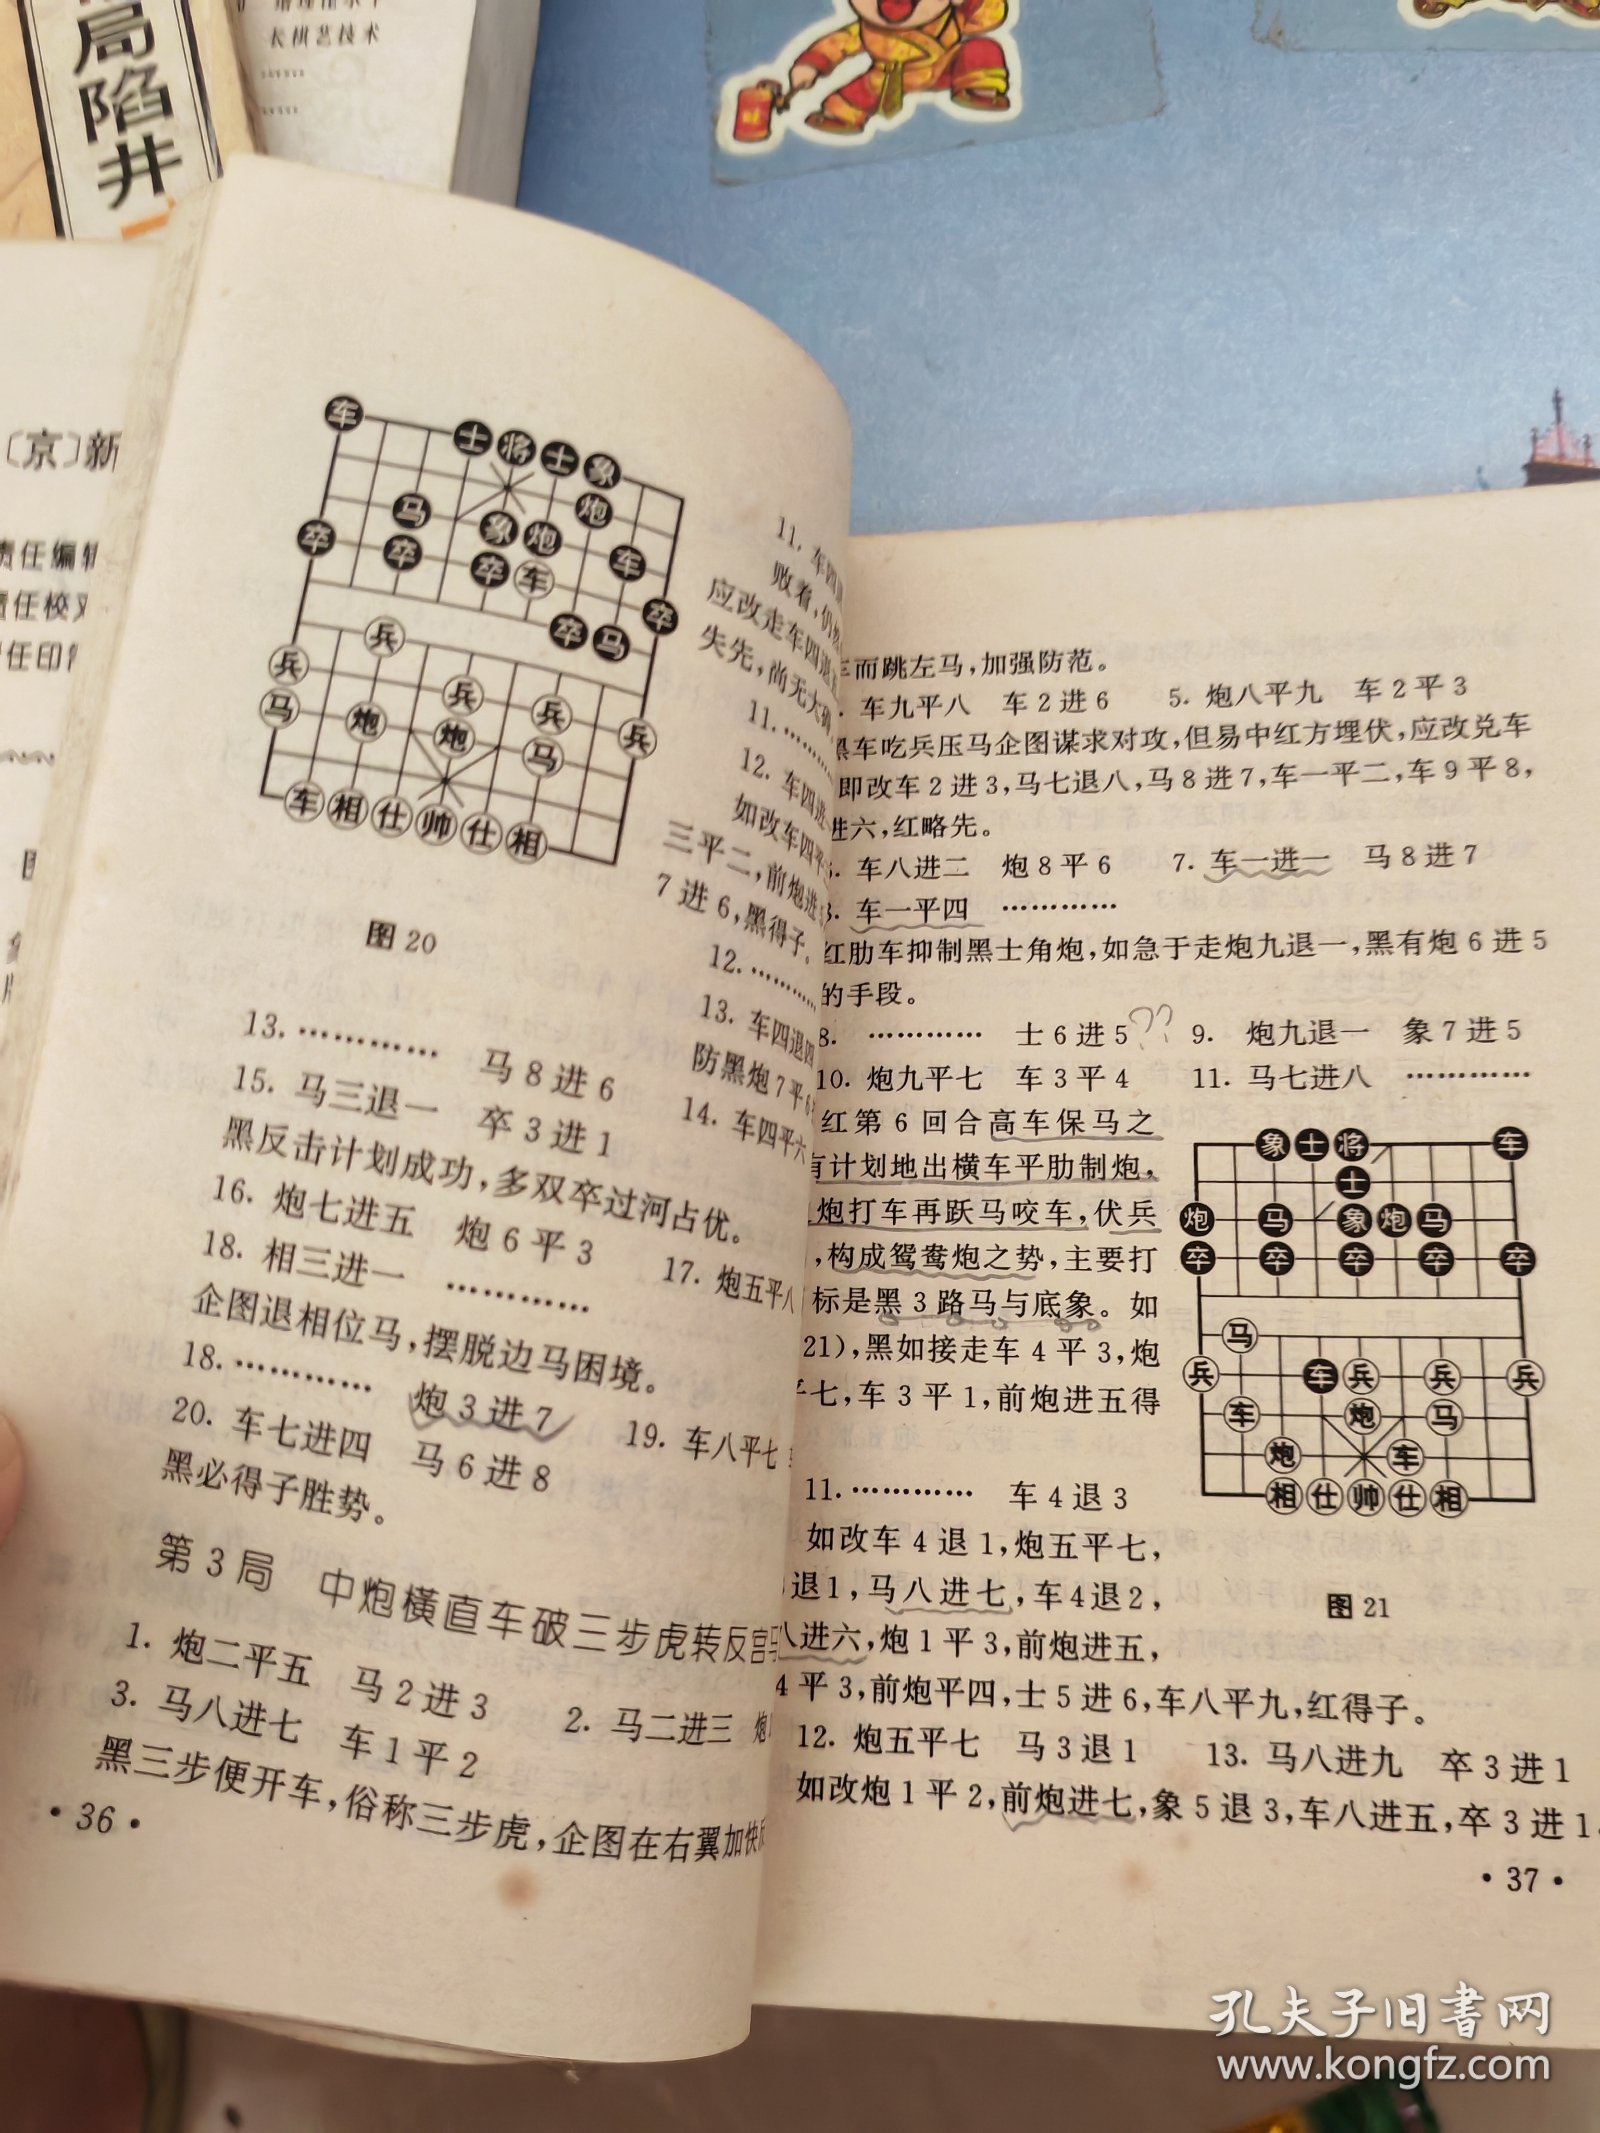 局陷井
长棋艺技术
〔京〕新
责任编辑
责任校
任印
车 士 将 士 象
炮
马 象 炮
卒 卒 卒 车 车
卒 马 卒
兵
兵 兵 兵 兵
马 炮 炮 马
车 相 仕 帅 仕 相
图20
11. 车四
败着,仍
应改走车四退
失先,尚无大
11.…………
12. 车四进
如改车四平
三平二,前炮进
7进6,黑得子。
12.…………
13. 车四退四
防黑炮7平6
14. 车四平六
13.………… 马8进6
15. 马三退一 卒3进1
黑反击计划成功,多双卒过河占优。
16. 炮七进五 炮6平3
17. 炮五平八
18. 相三进一 …………
企图退相位马,摆脱边马困境。
18.………… 炮3进7
19. 车八平七
20. 车七进四 马6进8
黑必得子胜势。
第3局 中炮横直车破三步虎转反宫马
1. 炮二平五 马2进3
2. 马二进三 炮
3. 马八进七 车1平2
黑三步便开车,俗称三步虎,企图在右翼加快
·36·
车而跳左马,加强防范。
车九平八 车2进6 5. 炮八平九 车2平3
黑车吃兵压马企图谋求对攻,但易中红方埋伏,应改兑车
即改车2进3,马七退八,马8进7,车一平二,车9平8,
进六,红略先。
车八进二 炮8平6 7. 车一进一 马8进7
车一平四 …………
红肋车抑制黑士角炮,如急于走炮九退一,黑有炮6进5
的手段。
8. ………… 士6进5?? 9. 炮九退一 象7进5
10. 炮九平七 车3平4 11. 马七进八 …………
红第6回合高车保马之
有计划地出横车平肋制炮,
炮打车再跃马咬车,伏兵
,构成鸳鸯炮之势,主要打
标是黑3路马与底象。如
21),黑如接走车4平3,炮
平七,车3平1,前炮进五得
象 士 将 车
士
炮 马 象 炮 马
卒 卒 卒 卒 卒
马
兵 车 兵 兵 兵
车 炮 马
炮 车
相 仕 帅 仕 相
图21
11.………… 车4退3
如改车4退1,炮五平七,
退1,马八进七,车4退2,
八进六,炮1平3,前炮进五,
4平3,前炮平四,士5进6,车八平九,红得子。
12. 炮五平七 马3退1 13. 马八进九 卒3进1
如改炮1平2,前炮进七,象5退3,车八进五,卒3进1,
·37·
孔夫子旧书网
www.kongfz.com